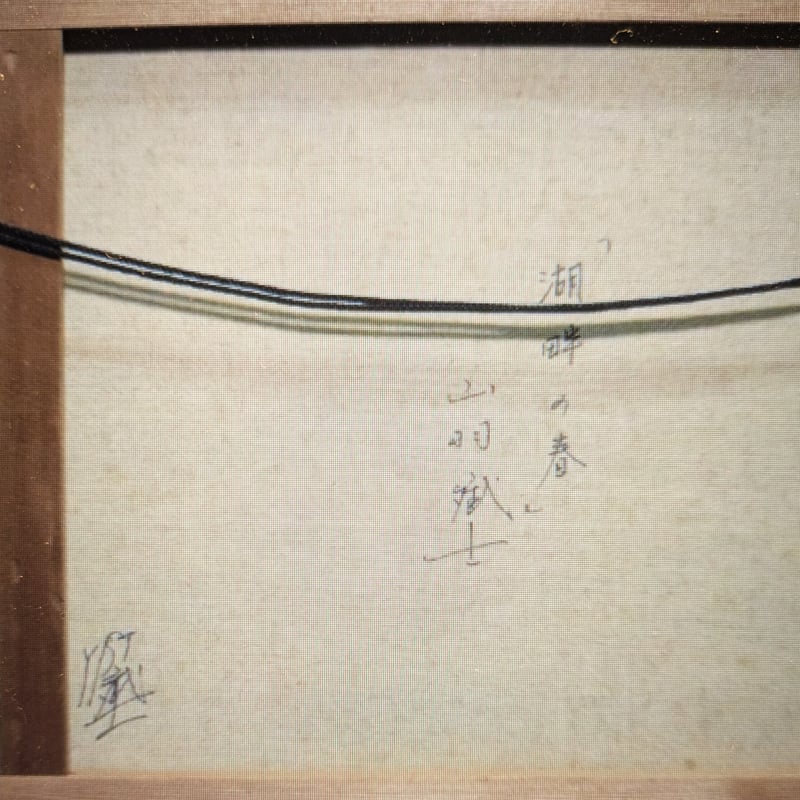 「湖畔の春」
山羽斌士